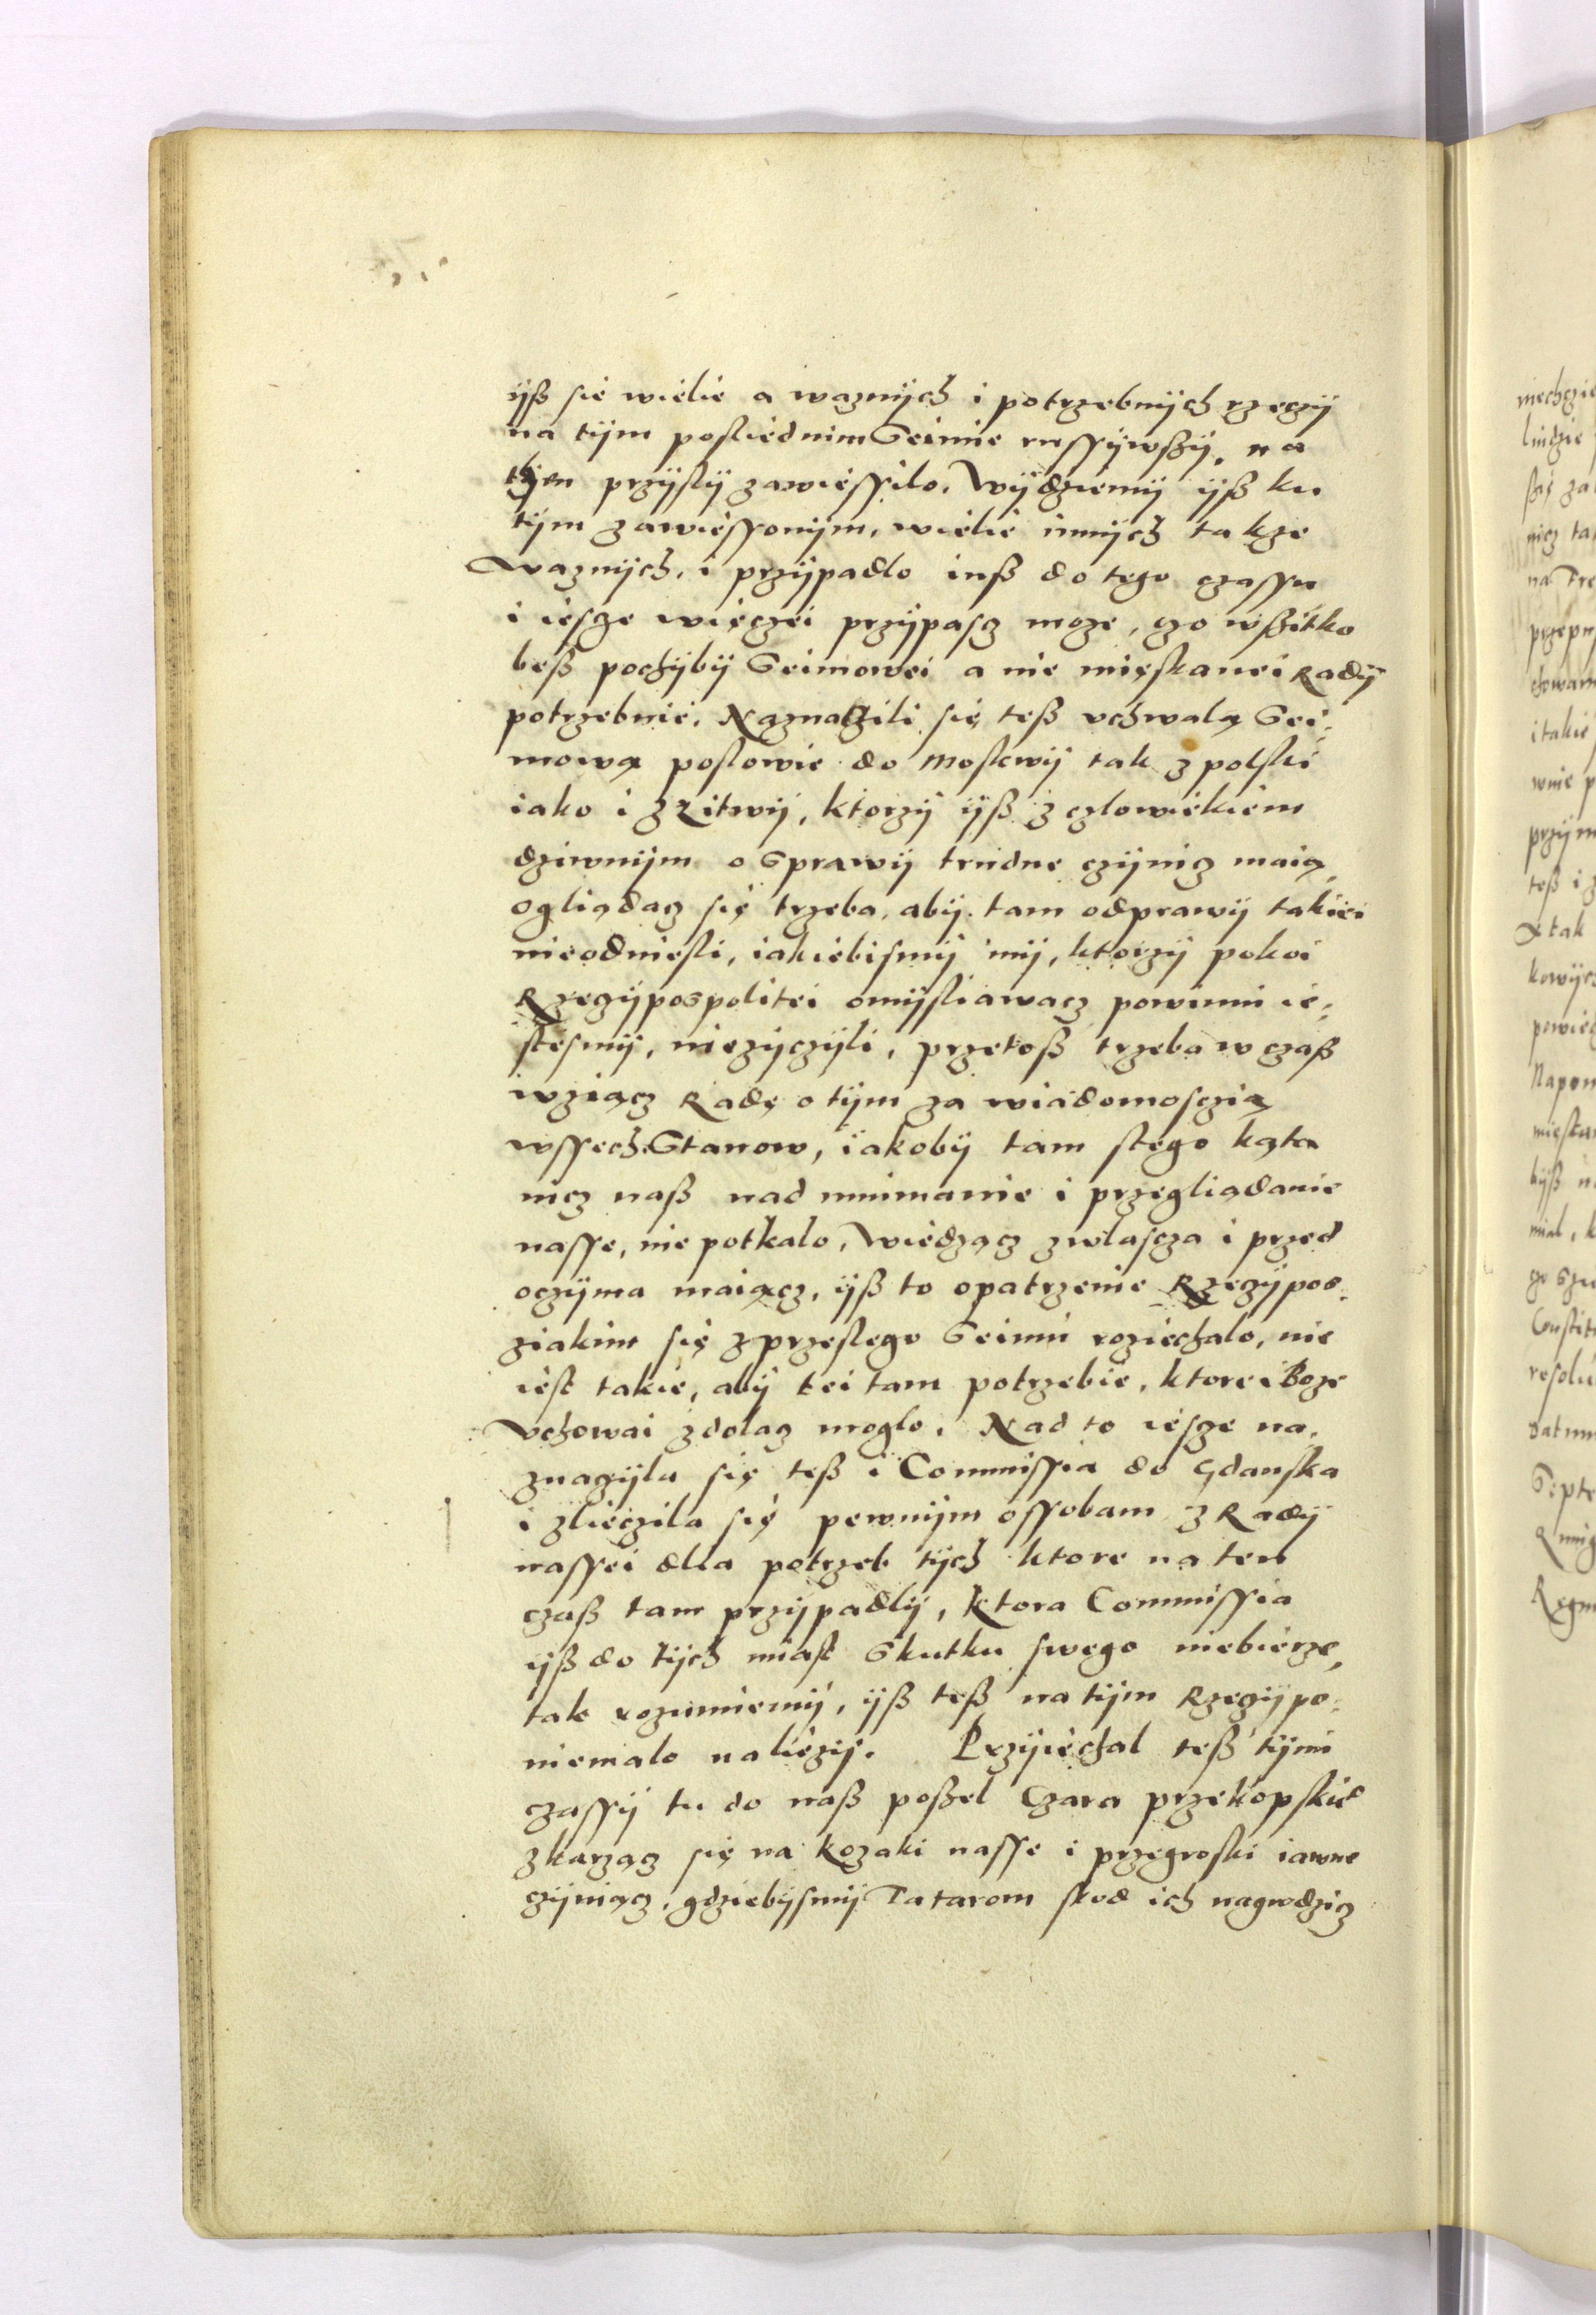 ÿß sie wielie a waznÿch i potrzebnÿch rzeczÿ
na tÿm posliednim Seimie russÿwßÿ, na
tÿen przÿslÿ zawiessilo. Wÿdziemÿ ÿß ku
tÿm zawiessonÿm, wielie innÿch takze
waznÿch, i przÿpadlo inß do tego czassu
i iesze więczei przÿpascz moze, czo wßitko
beß pochÿbÿ Seimowei a nie mięskanei Radÿ
potrzebnie. Naznaczili się teß vchwalą Sei:
mową poslowie do Moskwÿ tak z polski
iako i z Litwÿ, ktorzÿ ÿß z czlowiekiem
dziwnÿm o Sprawÿ trudne czÿnicz maią,
ogliądacz się trzeba, abÿ tam odprawÿ takiei
nieodniesli, iakiebismÿ mÿ, ktorzÿ pokoi
Rzeczÿpospolitei omÿsliawacz powinni ie:
stesmÿ, niezÿczÿli, przetoß trzeba w czaß
wziącz Radę o tÿm za wiadomosczią
wssech Stanow, iakobÿ tam stego kąta
nicz naß nad mnimanie i przegliądanie
nasse, nie potkalo, Wiedzącz zwlascza i przed
oczÿma maiącz, ÿß to opatrzenie Rzeczÿpos:
ziakim się z przeslego Seimu roziechalo, nie
iest takie, abÿ tei tam potrzebie, ktorei Boze
vchowai zdolacz moglo. Nad to iesze na:
znaczÿla się teß i Commissia do Gdanska
i zlieczila się pewnÿm ossobam z Radÿ
nassei dlia potrzeb tÿch ktore na ten
czaß tam przÿpadlÿ, ktora Commissia
ÿß do tÿch miast Skutku swego niebierze,
tak rozumiemÿ, ÿß teß na tÿm Rzeczÿpo:
niemalo naliezÿ. Przÿiechal teß tÿmi
czassÿ tu do naß poßel Czara przekopskie
zkarzącz się na kozaki nasse i przegroski iawne
czÿniącz, gdziebÿsmÿ Tatarom skod ich nagrodzicz